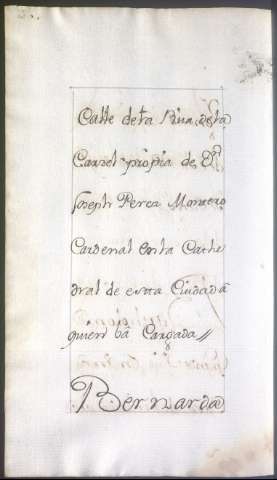 Calle de la Rua, de la
Carcel propia de Dn
Joseph Perea Montero
Cardenal en la Cathe
dral de esta Ciudad a
quien ba Cargada//
Bernarda